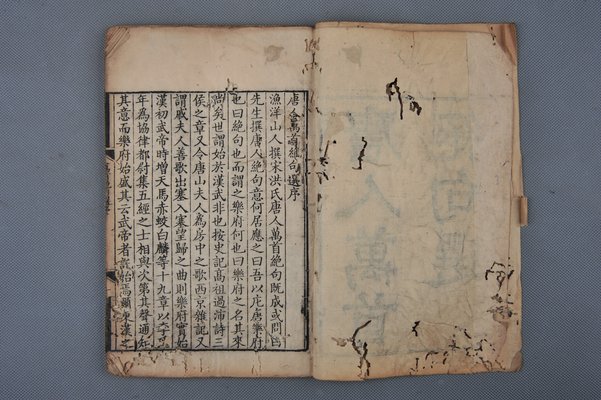 唐人萬首絕句選序
漁洋山人撰宋洪氏唐人萬首絕句既成或問曰
先生撰唐人絕句意何居應之曰吾以庀唐樂府
也曰絕句也而謂之樂府何也曰樂府之名其來
尚矣世謂始於漢武非也按史記高祖過沛詩三
侯之章又令唐山夫人為房中之歌西京雜記又
謂戚夫人善歌出塞入塞望歸之曲則樂府實始
漢初武帝時增天馬赤蛟白麟等十九章以李
年為協律都尉集五經之士相與次第其聲通知
其意而樂府始盛其云武帝者託始焉爾東漢之